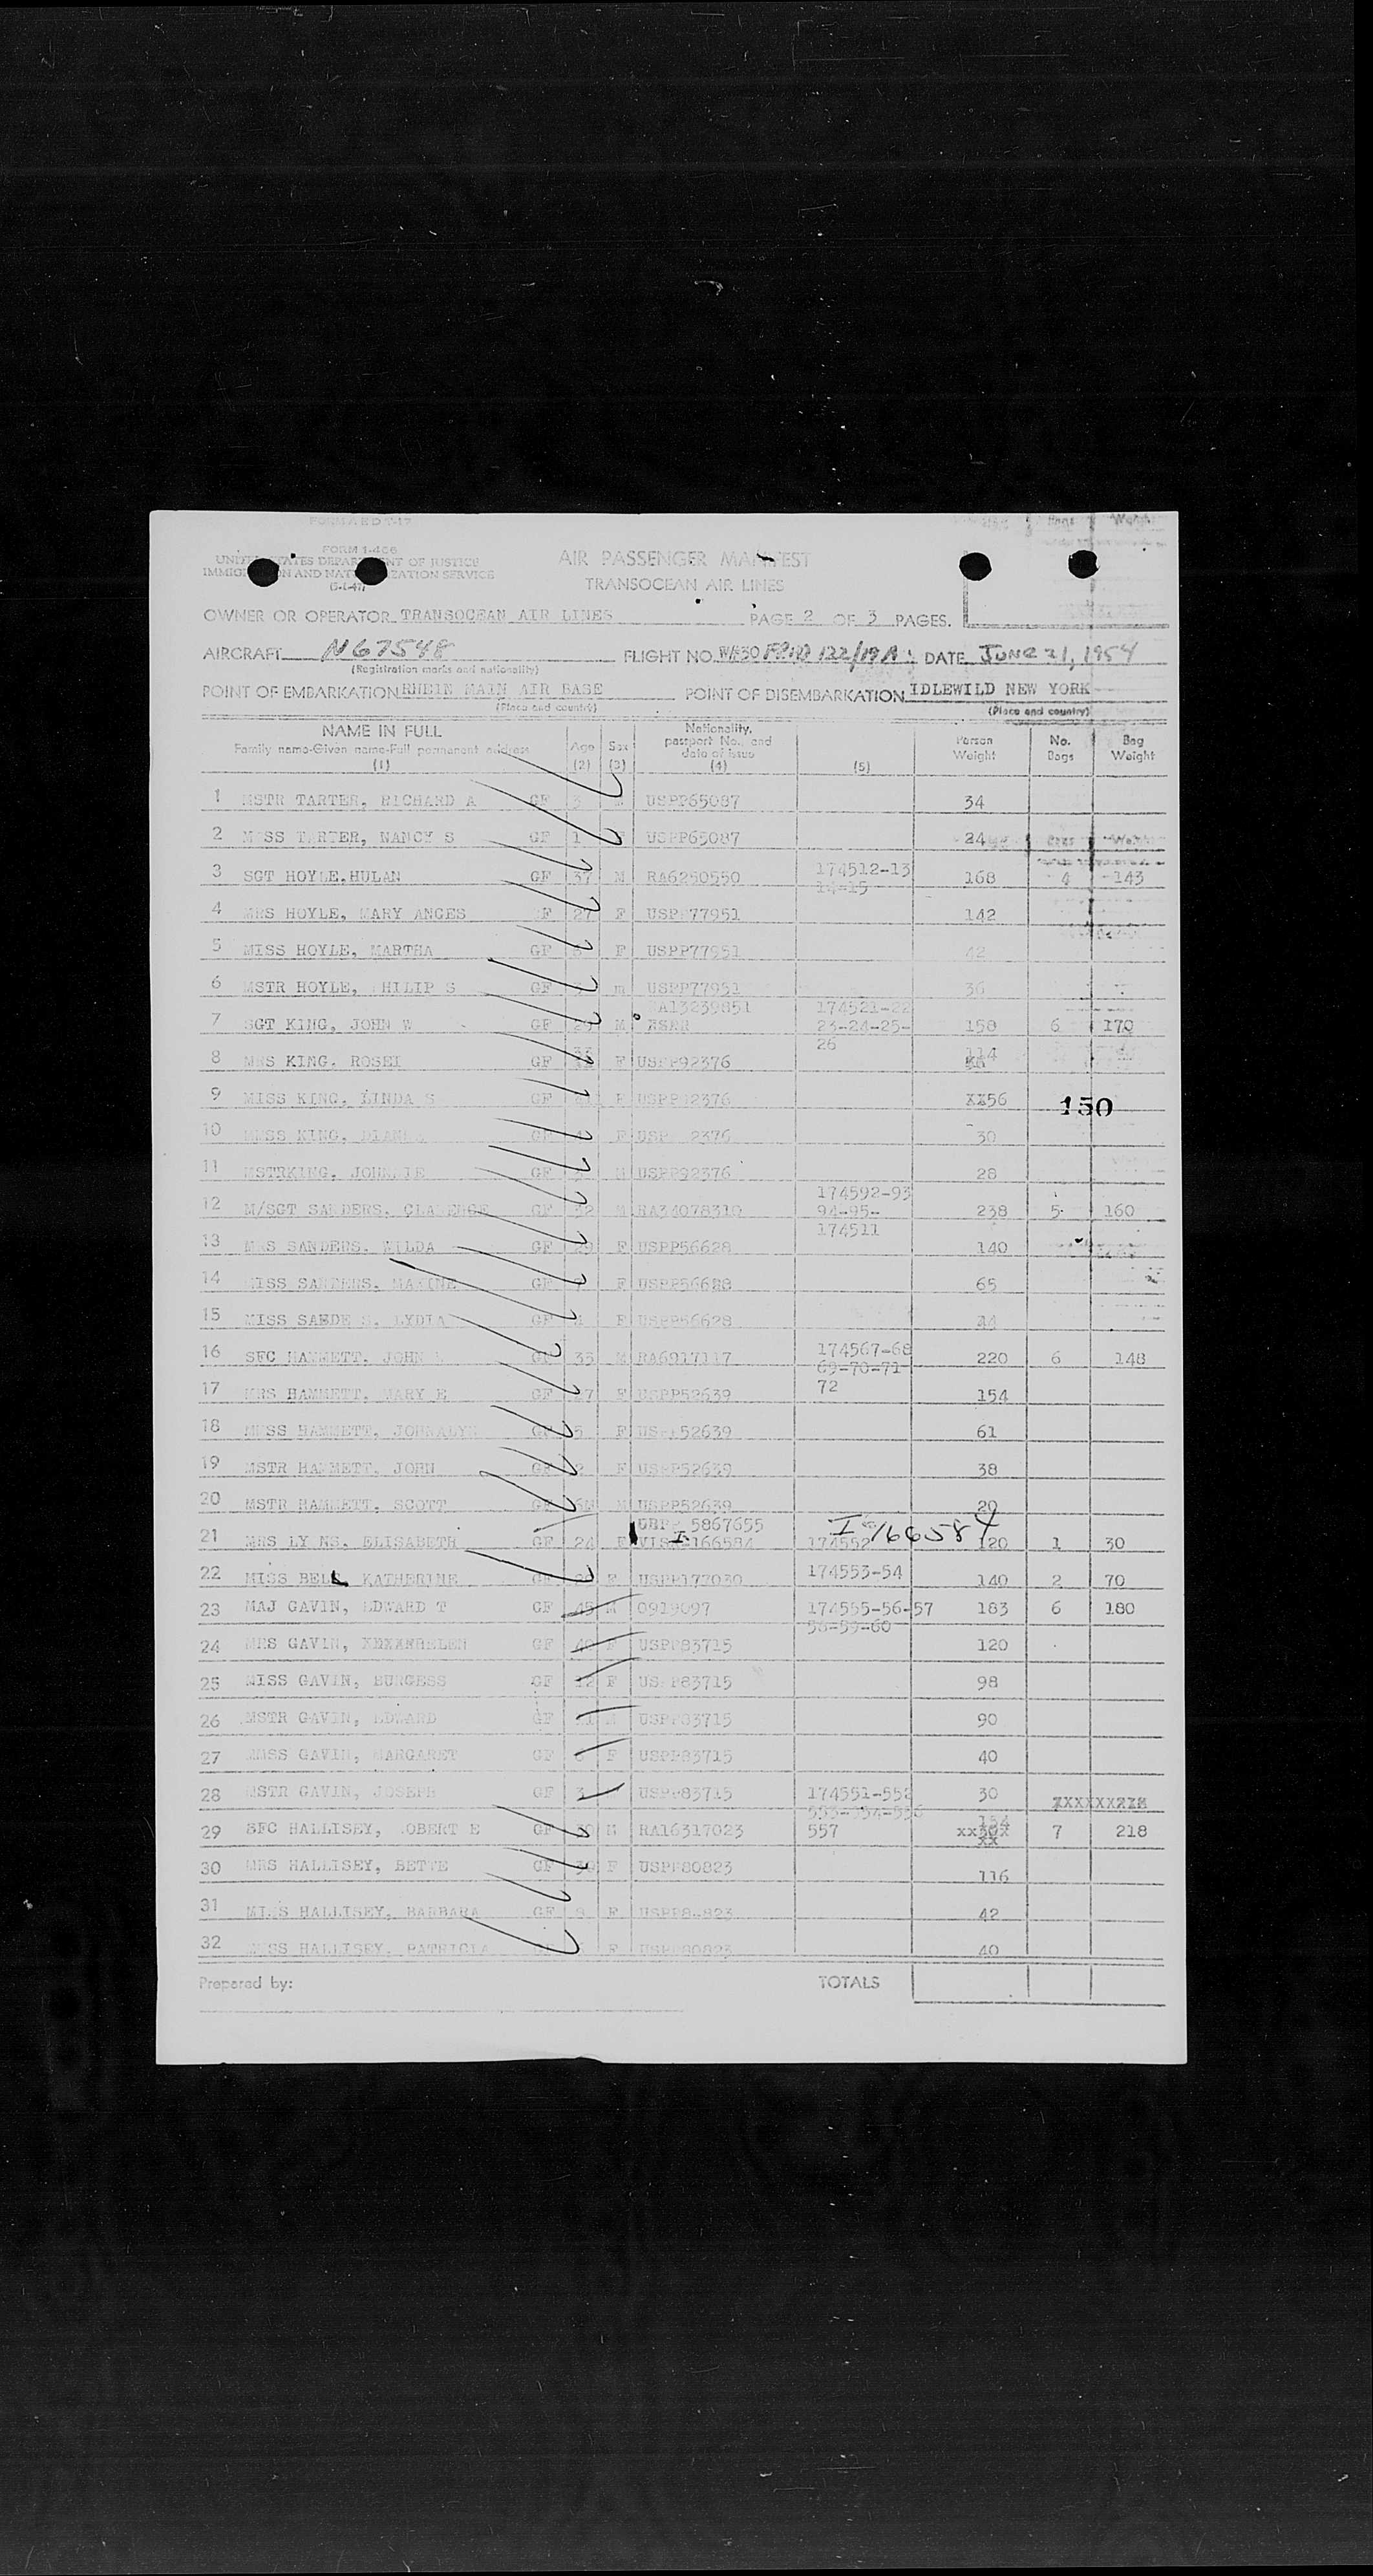 FORM I-466
UNITED STATES DEPARTMENT OF JUSTICE
IMMIGRATION AND NATURALIZATION SERVICE
AIR PASSENGER MANIFEST
TRANSOCEAN AIR LINES
OWNER OR OPERATOR TRANSOCEAN AIR LINES PAGE 2 OF 3 PAGES.
AIRCRAFT N67548 FLIGHT NO. 122/19A DATE JUNE 21, 1954
(Registration marks and nationality)
POINT OF EMBARKATION RHEIN MAIN AIR BASE POINT OF DISEMBARKATION IDLEWILD NEW YORK
(Place and country) (Place and country)
NAME IN FULL Family name-Given name-Full permanent address (1) Age (2) Sex (3) Nationality, passport No., and date of issue (4) (5) Person Weight No. Bags Bag Weight
1 MSTR TARTER, RICHARD A GF USPP65087 34
2 MISS TARTER, NANCY S GF 1 USPP65087 24
3 SGT HOYLE, HULAN GF 37 M RA6250550 174512-13 14-15 168 4 143
4 MRS HOYLE, MARY ANGES GF 27 F USPP77951 142
5 MISS HOYLE, MARTHA GF F USPP77951 42
6 MSTR HOYLE, PHILIP S GF m USPP77951 36
7 SGT KING, JOHN W GF 29 M RA13239851 174521-22 23-24-25- 26 158 6 170
8 MRS KING, ROSEI GF 33 F USPP92376 114
9 MISS KING, LINDA S GF F USPP92376 XX56 150
10 MISS KING, GF F USPP92376 30
11 MSTRKING, JOHNNIE GF M USPP92376 28
12 M/SGT SANDERS, CLARENCE GF 32 M RA34078310 174592-93 94-95- 174511 238 5 160
13 MRS SANDERS, WILDA GF 29 F USPP56628 140
14 MISS SANDERS, MAXINE GF F USPP56628 65
15 MISS SANDERS, LYDIA GF F USPP56628 44
16 SFC HAMMETT, JOHN GF 35 M RA6917117 174567-68 69-70-71 72 220 6 148
17 MRS HAMMETT, MARY E GF 27 F USPP52639 154
18 MISS HAMMETT, JOHNALYN GF 5 F USPP52639 61
19 MSTR HAMMETT, JOHN GF 2 F USPP52639 38
20 MSTR HAMMETT, SCOTT GF 6M M USPP52639 20
21 MRS LY NS, ELISABETH GF 24 F 5867655 VISA I-166584 174552 I 166584 120 1 30
22 MISS BELL KATHERINE GF F USPP177030 174553-54 140 2 70
23 MAJ GAVIN, EDWARD T GF 45 M 0919097 174555-56-57 58-59-60 183 6 180
24 MRS GAVIN, XEXXNHELEN GF 40 F USPP83715 120
25 MISS GAVIN, BURGESS GF 12 F USPP83715 98
26 MSTR GAVIN, EDWARD GF 11 M USPP83715 90
27 MISS GAVIN, MARGARET GF 6 F USPP83715 40
28 MSTR GAVIN, JOSEPH GF 3 USPP83715 30
29 SFC HALLISEY, ROBERT E GF 30 M RA16317023 174551-552 553-554-556 557 184 7 218
30 MRS HALLISEY, BETTE GF 30 F USPP80823 116
31 MISS HALLISEY, BARBARA GF F USPP80823 42
32 MISS HALLISEY, PATRICIA F USPP80823 40
Prepared by: TOTALS